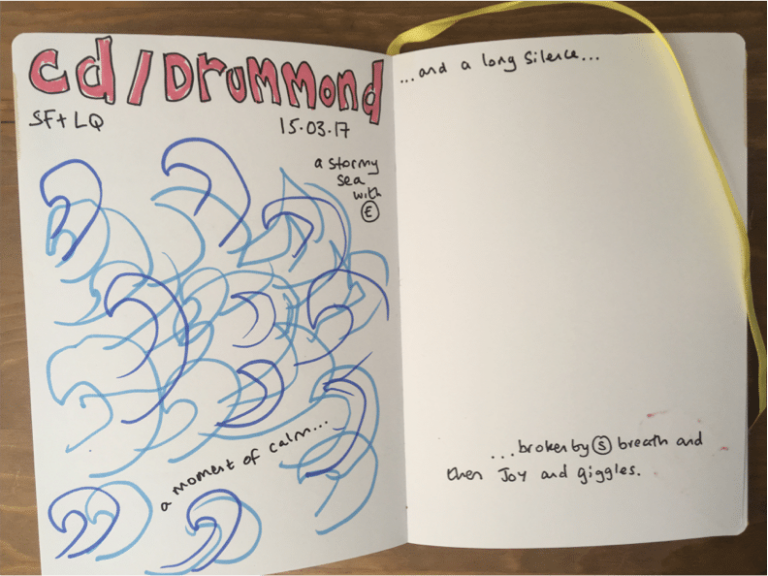 cd/Drummond
SF+LQ
15.03.17
a stormy
sea
with
Ⓔ
a moment of calm...
...and a long silence...
...broken by Ⓢ breath and
then Joy and giggles.